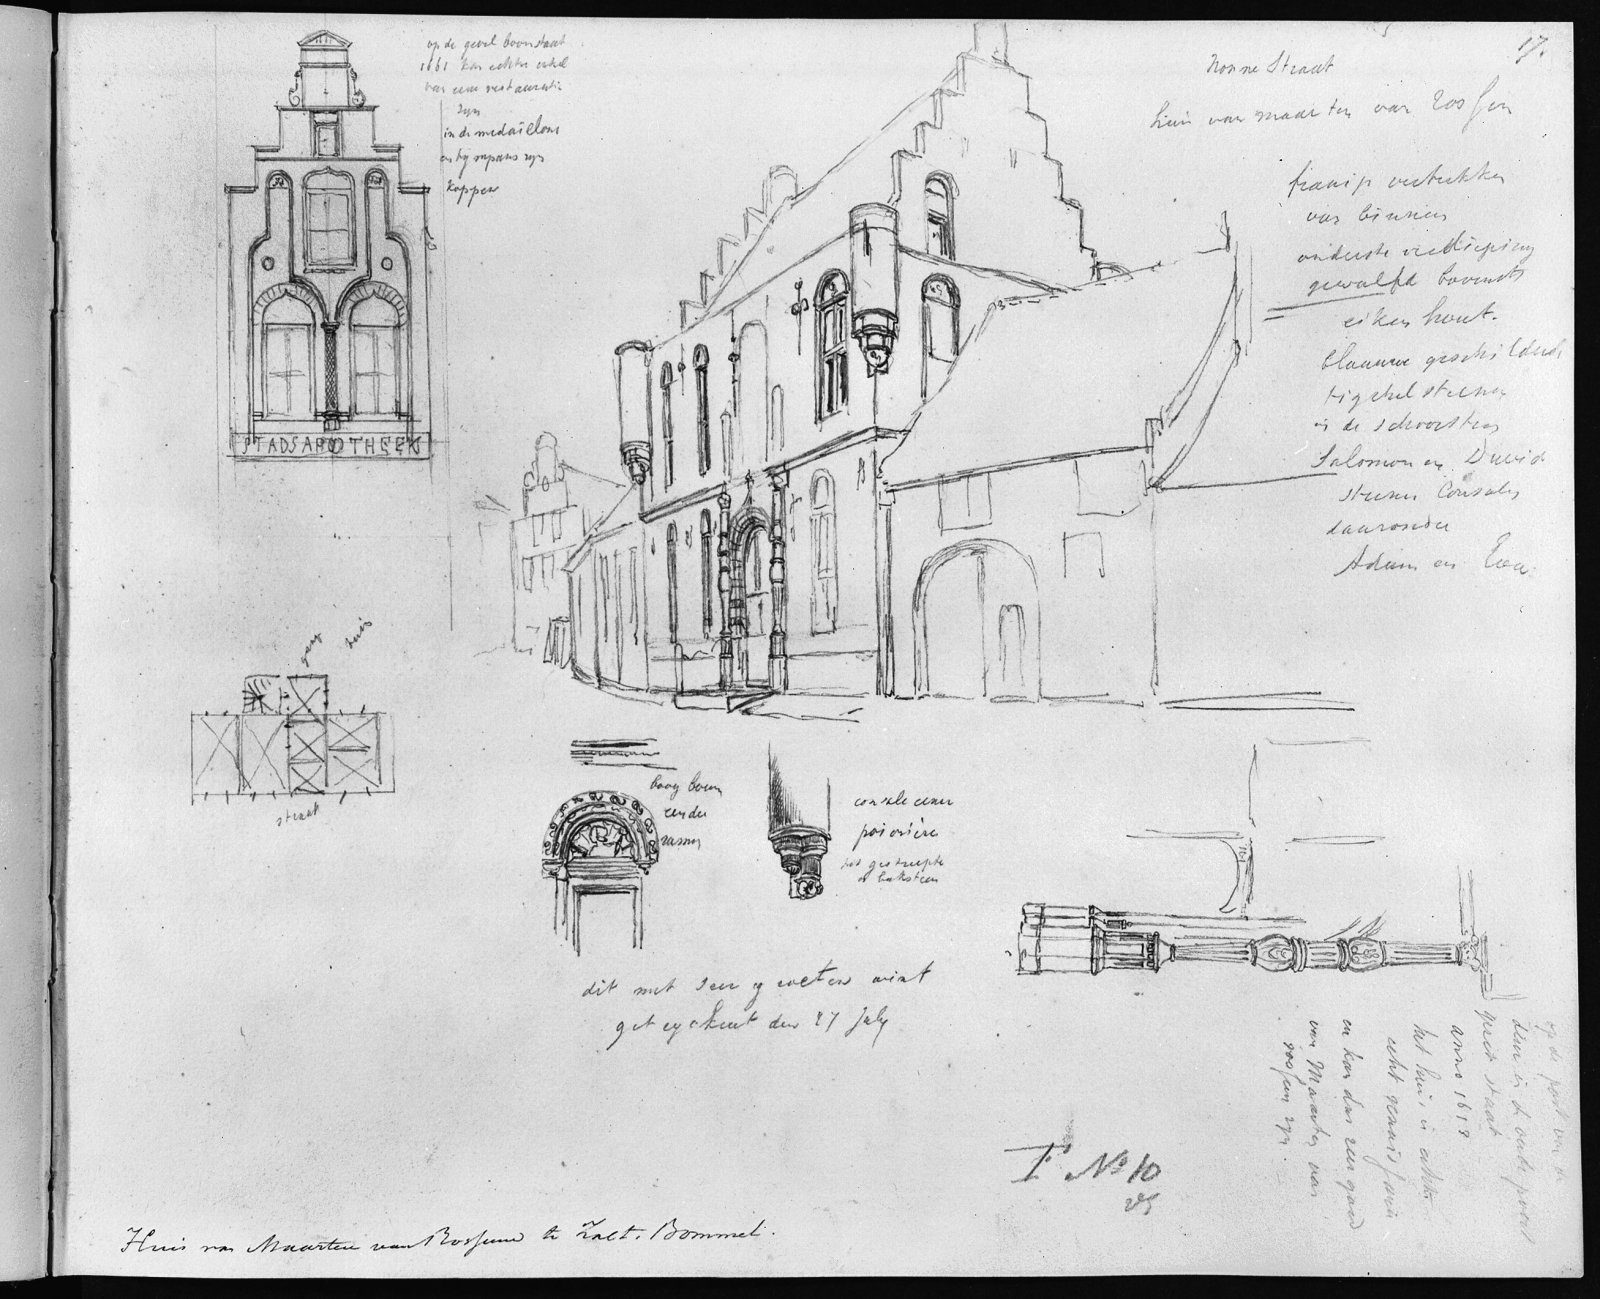 17.
op de gevel boven staat
1661 kan echter enkel
van eene restauratie
zyn
in de medaillons
en by rapans zyn
koppen
STADSAPOTHEEK
Nonne Straat
huis van maarten van Rossem
fraaije vertrekken
van binnen
onderste verdieping
gewelfd bovenste
eiken hout.
blaauwe geschilderde
tigchel steenen
in de schoorsteen
Salomon en David
steenen Consoles
daaronder
Adam en Eva
huis
straat
boog boven
een der
ramen
console eener
poivrière
het gestreepte
is baksteen
dit met zeer grooten wint
geteykent den 27 July
op de
deur in de
staat
anno 1618
het huis is echter
echt
en kan dus zeer goed
van Maarten van
Rossem zyn
T No 10
Huis van Maarten van Rossum te Zalt-Bommel.